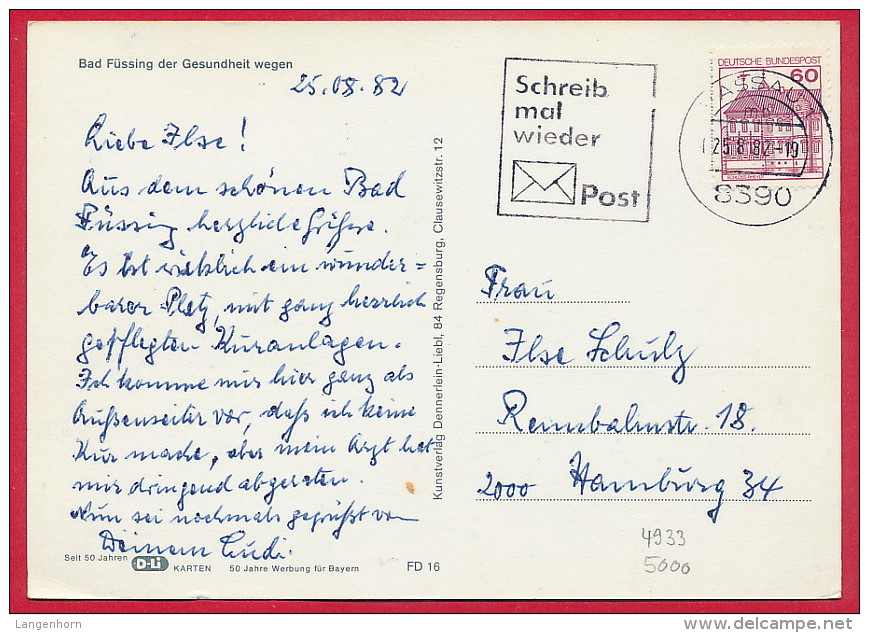 Bad Füssing der Gesundheit wegen
25.08.82
Liebe Ilse!
Aus dem schönen Bad
Füssing herzliche Grüsse.
Es ist wirklich ein wunder=
barer Platz, mit ganz herrlich
gepflegten Kuranlagen.
Ich komme mir hier ganz als
Außenseiter vor, daß ich keine
Kur mache, aber mein Arzt hat
mir dringend abgeraten.
Nun sei nochmals gegrüßt von
Deinem Ludi.
Seit 50 Jahren D-Li KARTEN 50 Jahre Werbung für Bayern FD 16
Kunstverlag Dennerlein-Liebl, 84 Regensburg, Clausewitzstr. 12
Schreib
mal
wieder
Post
DEUTSCHE BUNDESPOST
60
PASSAU 1
mb
25.8.82-19
8390
SCHLOSS RHEYDT
Frau
Ilse Schulz
Rennbahnstr. 18.
2000 Hamburg 34
4933
5000
Langenhorn
www.delcampe.net